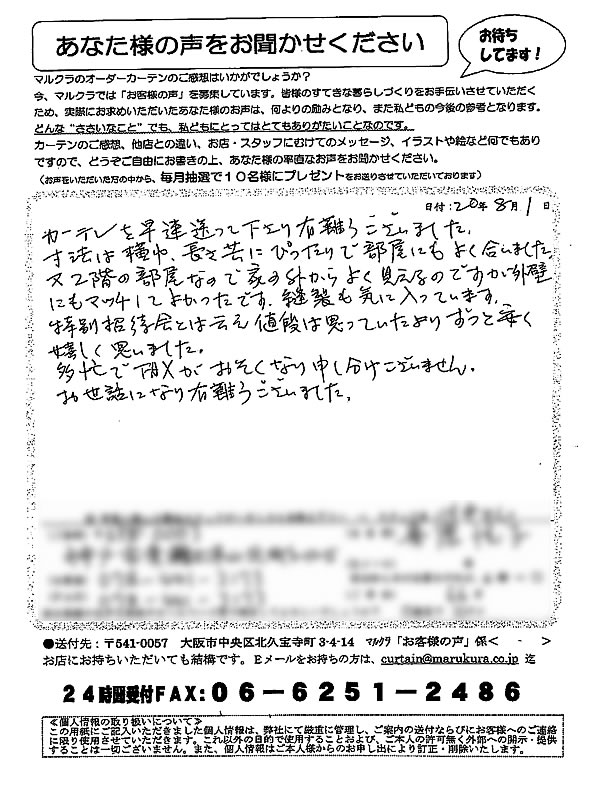 あなた様の声をお聞かせください
お待ち
してます!
マルクラのオーダーカーテンのご感想はいかがでしょうか?
今、マルクラでは「お客様の声」を募集しています。皆様のすてきな暮らしづくりをお手伝いさせていただく
ため、実際にお求めいただいたあなた様のお声は、何よりの励みとなり、また私どもの今後の参考となります。
どんな“ささいなこと”でも、私どもにとってはとてもありがたいことなのです。
カーテンのご感想、他店との違い、お店・スタッフにむけてのメッセージ、イラストや絵など何でもあり
ですので、どうぞご自由にお書きの上、あなた様の率直なお声をお聞かせください。
(お声をいただいた方の中から、毎月抽選で10名様にプレゼントをお送りさせていただいております)
日付:20年8月1日
カーテンを早速送って下さり有難うございました。
寸法は横巾、長さ共にぴったりで部屋にもよく合いました。
又2階の部屋なので家の外からよく見えるのですが外壁
にもマッチしてよかったです。縫製も気に入っています。
特別招待会とは云え値段は思っていたよりずっと安く
嬉しく思いました。
多忙でFAXがおそくなり申し分けございません。
お世話になり有難うございました。
●送付先:〒541-0057 大阪市中央区北久宝寺町3-4-14 マルクラ「お客様の声」係< - >
お店にお持ちいただいても結構です。Eメールをお持ちの方は、curtain@marukura.co.jp 迄
24時間受付FAX:06-6251-2486
≪個人情報の取り扱いについて≫
この用紙にご記入いただきました個人情報は、弊社にて厳重に管理し、ご案内の送付ならびにお客様へのご連絡
に限り使用させていただきます。これ以外の目的で使用することおよび、ご本人の許可無く外部への開示・提供
することは一切ございません。また、個人情報はご本人様からのお申し出により訂正・削除いたします。